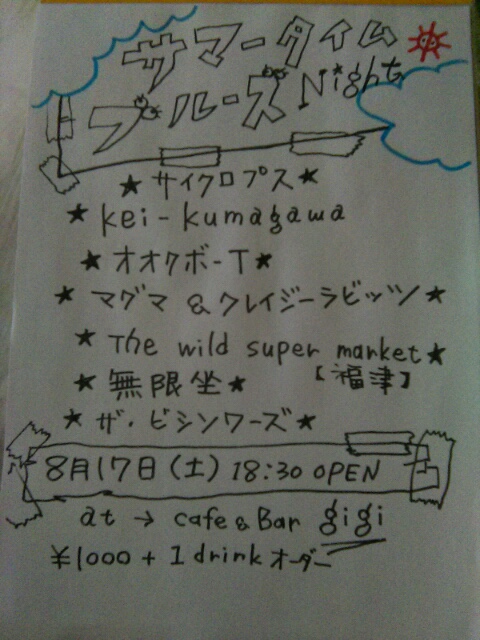 サマータイム
ブルーズ Night
★ サイクロプス ★
★ kei-kumagawa
★ オオクボ-T ★
★ マグマ & クレイジーラビッツ ★
★ The wild super market ★
★ 無限坐 ★ 【福津】
★ ザ・ビシンワーズ ★
8月17日(土) 18:30 OPEN
at → cafe & Bar gigi
¥1000 + 1 drink オーダー